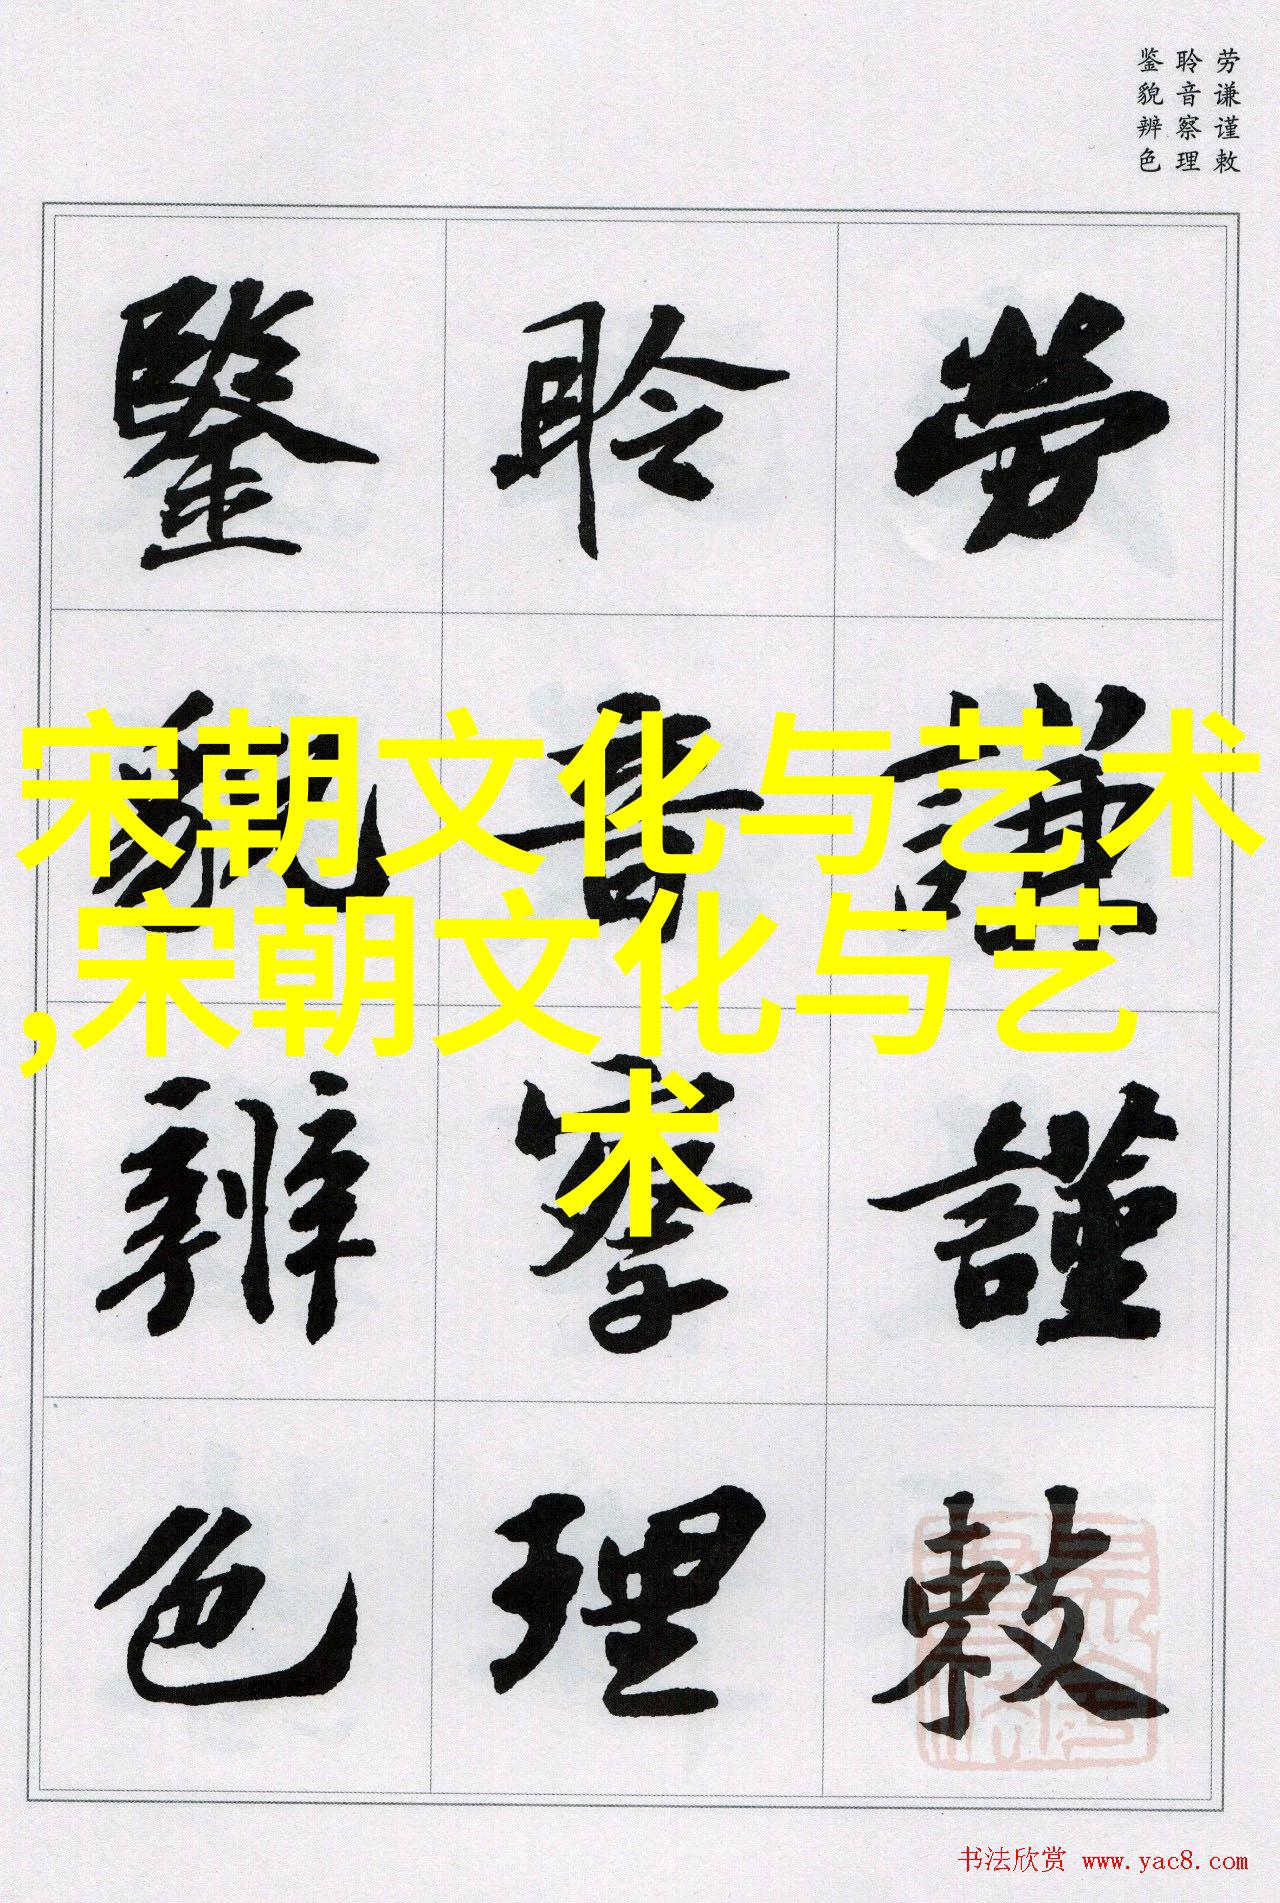 劳谦谨敕
聆音察理
鉴貌辨色
勞謙謹敕
聆音察理
鑒貌辨色
宋朝文化与艺术
,宋朝文化与艺
术
书法欣赏 www.yac8.com